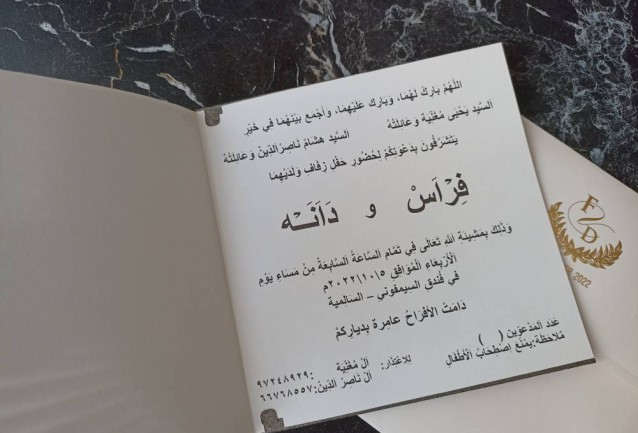 اللَّهُمَّ بَارِكْ لَهُمَا، وَبَارِك عَلَيْهِمَا، وَاجْمَع بَيْنَهُمَا فِي خَيْر
السَّيِّد يَحْيَى مُغْنِيَة وَعَائِلَتُهُ السَّيِّد هِشَام نَاصِرُ الدِّين وَعَائِلَتُهُ
يَتَشَرَّفُونَ بِدَعْوَتِكُمْ لِحُضُورِ حَفْلِ زِفَافِ وَلَدَيْهِمَا
فِرَاسْ و دَانَه
وَذَلِكَ بِمَشِيئَةِ اللَّهِ تَعَالَى فِي تَمَامِ السَّاعَةِ السَّابِعَةِ مِنْ مَسَاءِ يَوْمِ
الْأَرْبِعَاءِ الْمُوَافِقِ ٢٠٢٢/١٠/٥م
فِي فُنْدُقِ السيمفوني – السالمية
دَامَتْ الأَفْرَاحُ عَامِرَة بِدِيَارِكُمْ
عَدَد المَدْعوّين ( )
مُلَاحَظَة: يمْنَعُ اصْطِحَابُ الْأَطْفَالِ
للإعْتِذَار: آلْ مُغْنِيَة: ٩٧٢٤٨٩٢٩
آلْ نَاصِرُ الدِّينْ: ٦٦٧٦٨٥٥٧
F D
2022